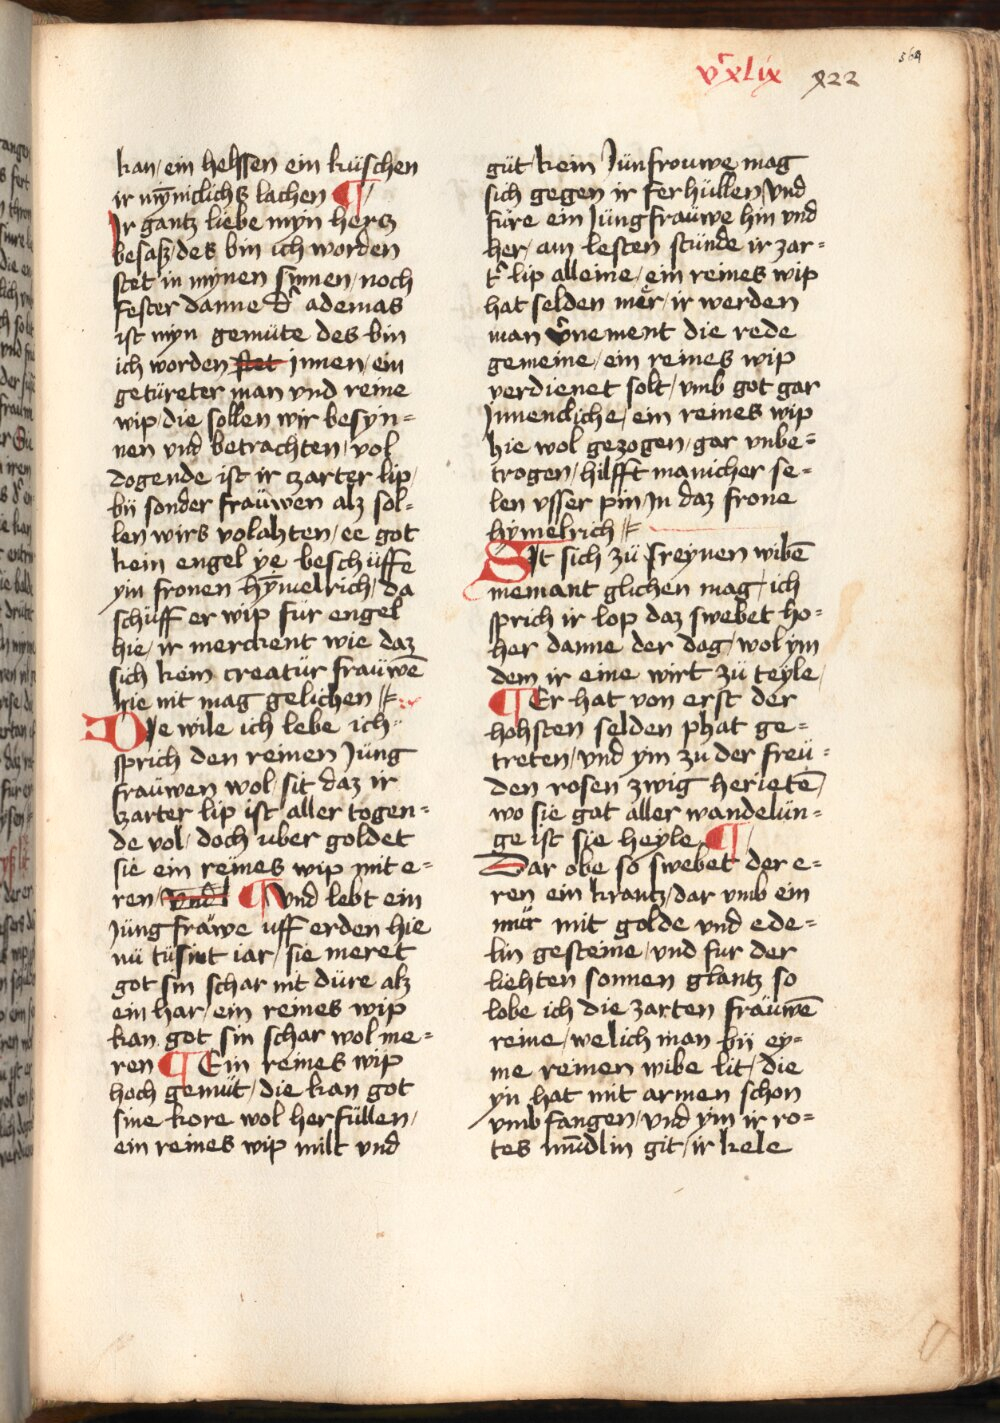 vᶜxlix 822
569
kan / ein helssen ein küschen
ir mȳniclichs lachen ¶
Ir gantz liebe myn hertz
besasz / des bin ich worden
stet in mynen sinnen / noch
fester danne dˀ ademas
ist myn gemüte des bin
ich worden stet Innen / ein
getüreter man vnd reine
wip / die sollen wir besyn=
nen vnd betrachten / vol
dogende ist ir czarter lip /
bij sonder fraüwen alz sol=
len wirs volahten / ee got
kein engel ye beschüffe
ym fronen hȳmelrich / da
schüff er wip für engel
hie / ir merckent wie daz
sich kein creatür fraüwē
hie nit mag gelichen
DJe wile ich lebe ich
sprich den reinen Jüng
fraüwen wol / sit daz ir
tzarter lip ist aller togen=
de vol / doch uber goldet
sie ein reines wip mit e=
ren / vnd ¶ Vnd lebt ein
Jüngfräwe uff erden hie
nü tüsint iar / sie meret
got sin schar nit düre alz
ein har / ein reines wip
kan got sin schar wol me=
ren ¶ Ein reines wip
hoch gemüt / die kan got
sine kore wol herfüllen /
ein reines wip milt vnd
güt / kein Jünfrouwe mag
sich gegen ir ferhüllen / vnd
füre ein Jüngfraüwe hin vnd
her / am lesten stünde ir zar=
tˀ lip alleine / ein reines wip
hat selden mer / ir werden
man vˀnement die rede
gemeine / ein reines wip
verdienet solt / vmb got gar
Jnnencliche / ein reines wip
hie wol gezogen / gar vnbe=
trogen / hilfft manicher se=
len vsser pin Jn daz frone
hymelrich
SJt sich zü freynen wibē
niemant glichen mag / ich
sprich ir lop daz swebet ho=
her danne der dag / wol ym
dem ir eine wirt zü teyle /
¶ Er hat von erst der
hohsten selden phat ge=
treten / vnd ym zu der freü=
den rosen zwig herietē /
wo sie gat aller wandelün=
ge ist sie heyle ¶
Dar obe so swebet der e=
ren ein krantz / dar vmb ein
mür mit golde vnd ede=
lin gesteine / vnd fur der
liehten sonnen glantz so
lobe ich die zarten fraüwē
reine / welich man bij ey=
me reinen wibe lit / die
yn hat mit armen schon
vmbfangen / vnd ym ir ro=
tes mu᷑dlin git / ir kele